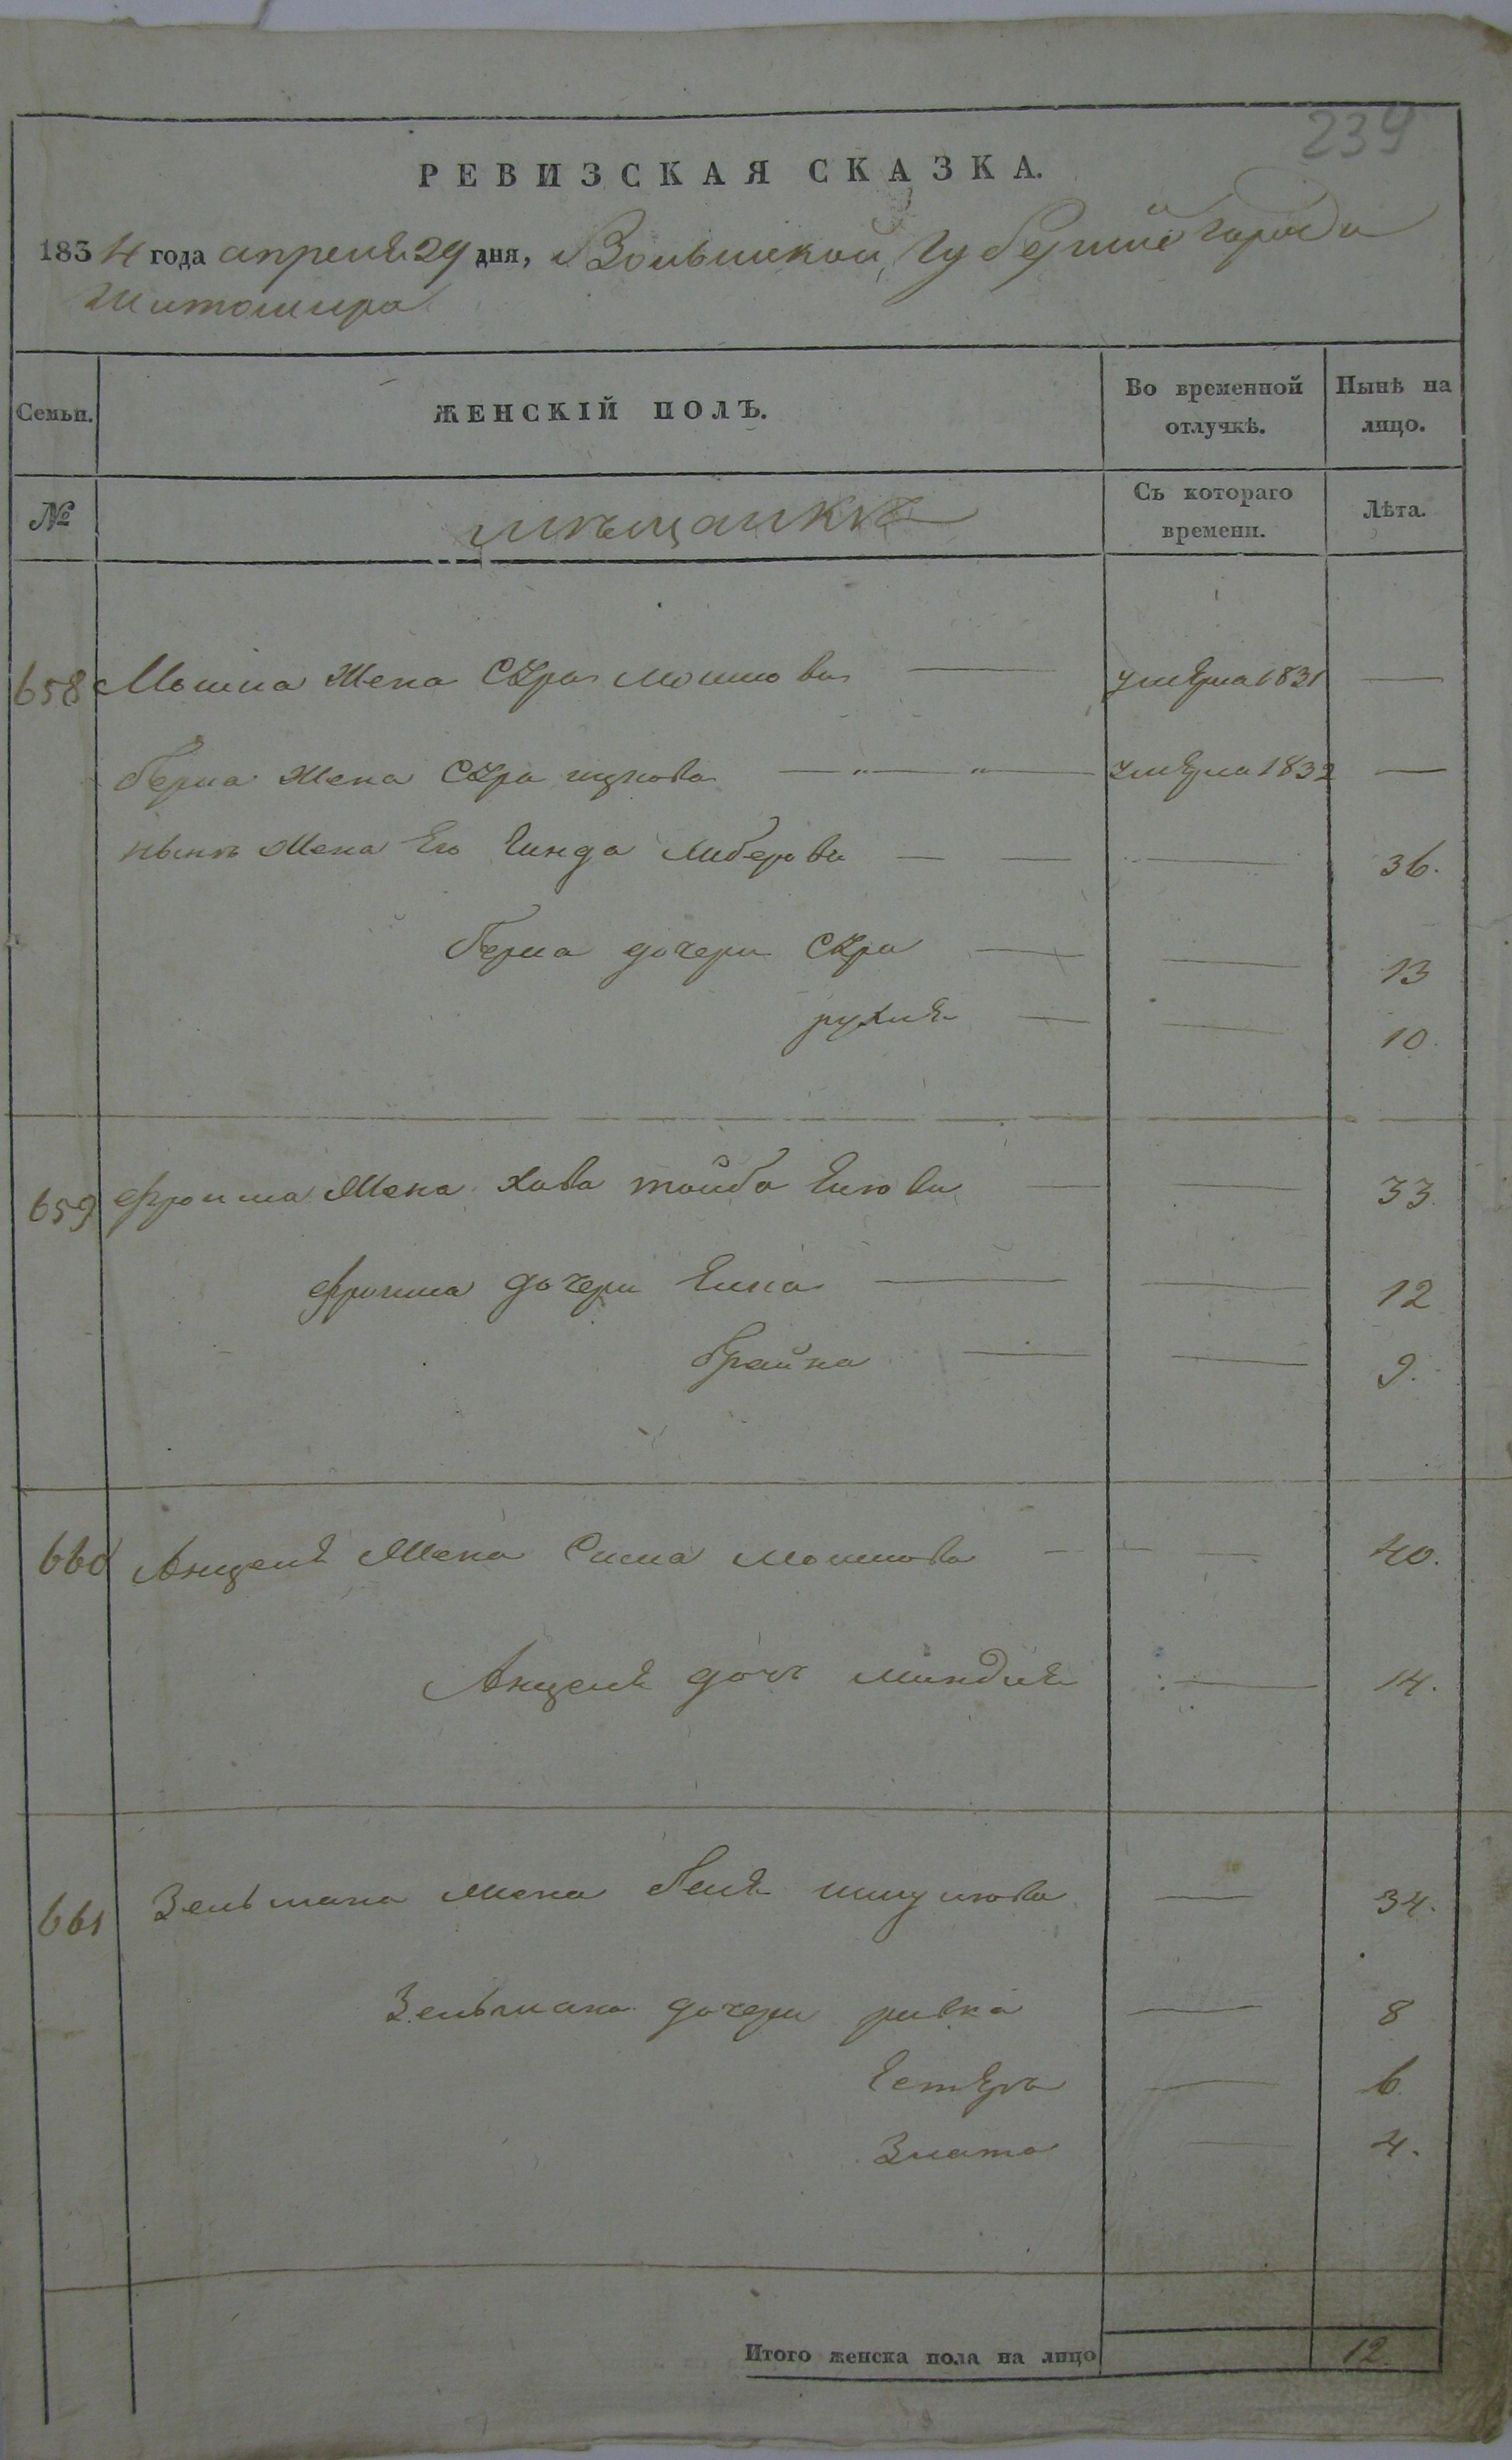 239
РЕВИЗСКАЯ СКАЗКА.
1834 года апреля 29 дня, Волынской Губернии города
Житомира
Семьи. ЖЕНСКІЙ ПОЛЪ. Во временной отлучкѣ. Нынѣ на лицо.
№ мѣщанки Съ котораго времени. Лѣта.
658 Мошка Жена Сура мошкова — умерла 1831 —
берка Жена Сура ицкова — „ — „ — умерла 1832 —
нынѣ Жена Его Гинда либерова — — — 36.
берка дочери Сура — — 13
рухля — — 10
659 фроима Жена хава тойба Елюва — — 33
фроима дочери Елка — — 12
брайна — — 9.
660 Анцеля Жена Сима мошкова — — — 40.
Анцеля дочь миндля — 14.
661 Зельмана жена бейля шмулова — 34.
Зельмана дочери ривка — 8
Естера — 6
Злата — 4.
Итого женска пола на лицо 12.